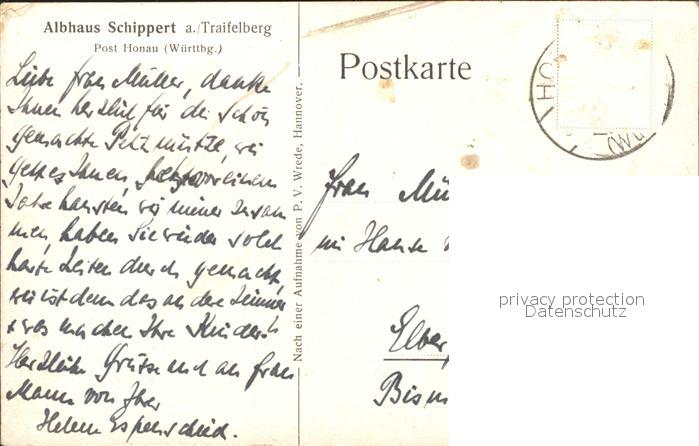 Albhaus Schippert a./Traifelberg
Post Honau (Württbg.)
Liebe Frau Müller, danke
Ihnen herzlich für die schön
gemachte Pelzmütze, wie
geht es Ihnen, jetzt vor einem
Jahre hausten wir immer zusam
men, haben Sie wieder solch
harte Zeiten durch gemacht,
wie ist denn das an der Zimmer
was machen Ihre Kinder?
Herzliche Grüsse und an Ihren
Mann von Ihrer
Helene Espenschied.
Nach einer Aufnahme von P. V. Wrede, Hannover.
Postkarte
Frau Mü
im Hause
Elber
Bism
privacy protection
Datenschutz